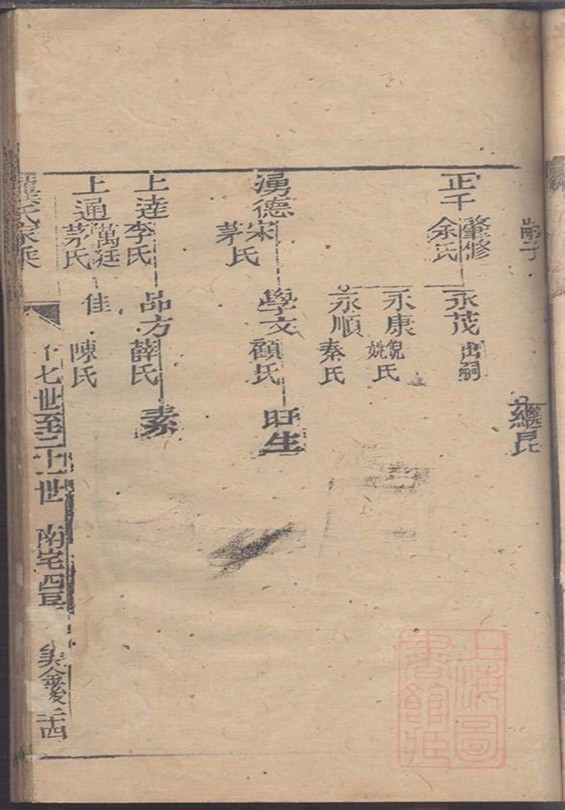 嗣子
繼昆
正千
肇修
余氏
永茂
出嗣
永康
倪氏
姚
永順
秦氏
湧德
宋氏
茅
學文
顧氏
旺生
上達
李氏
品方
薛氏
素
上通
萬廷
茅氏
佳
陳氏
龔氏家乘
十七世至二十一世 南宅西
上海圖書館藏